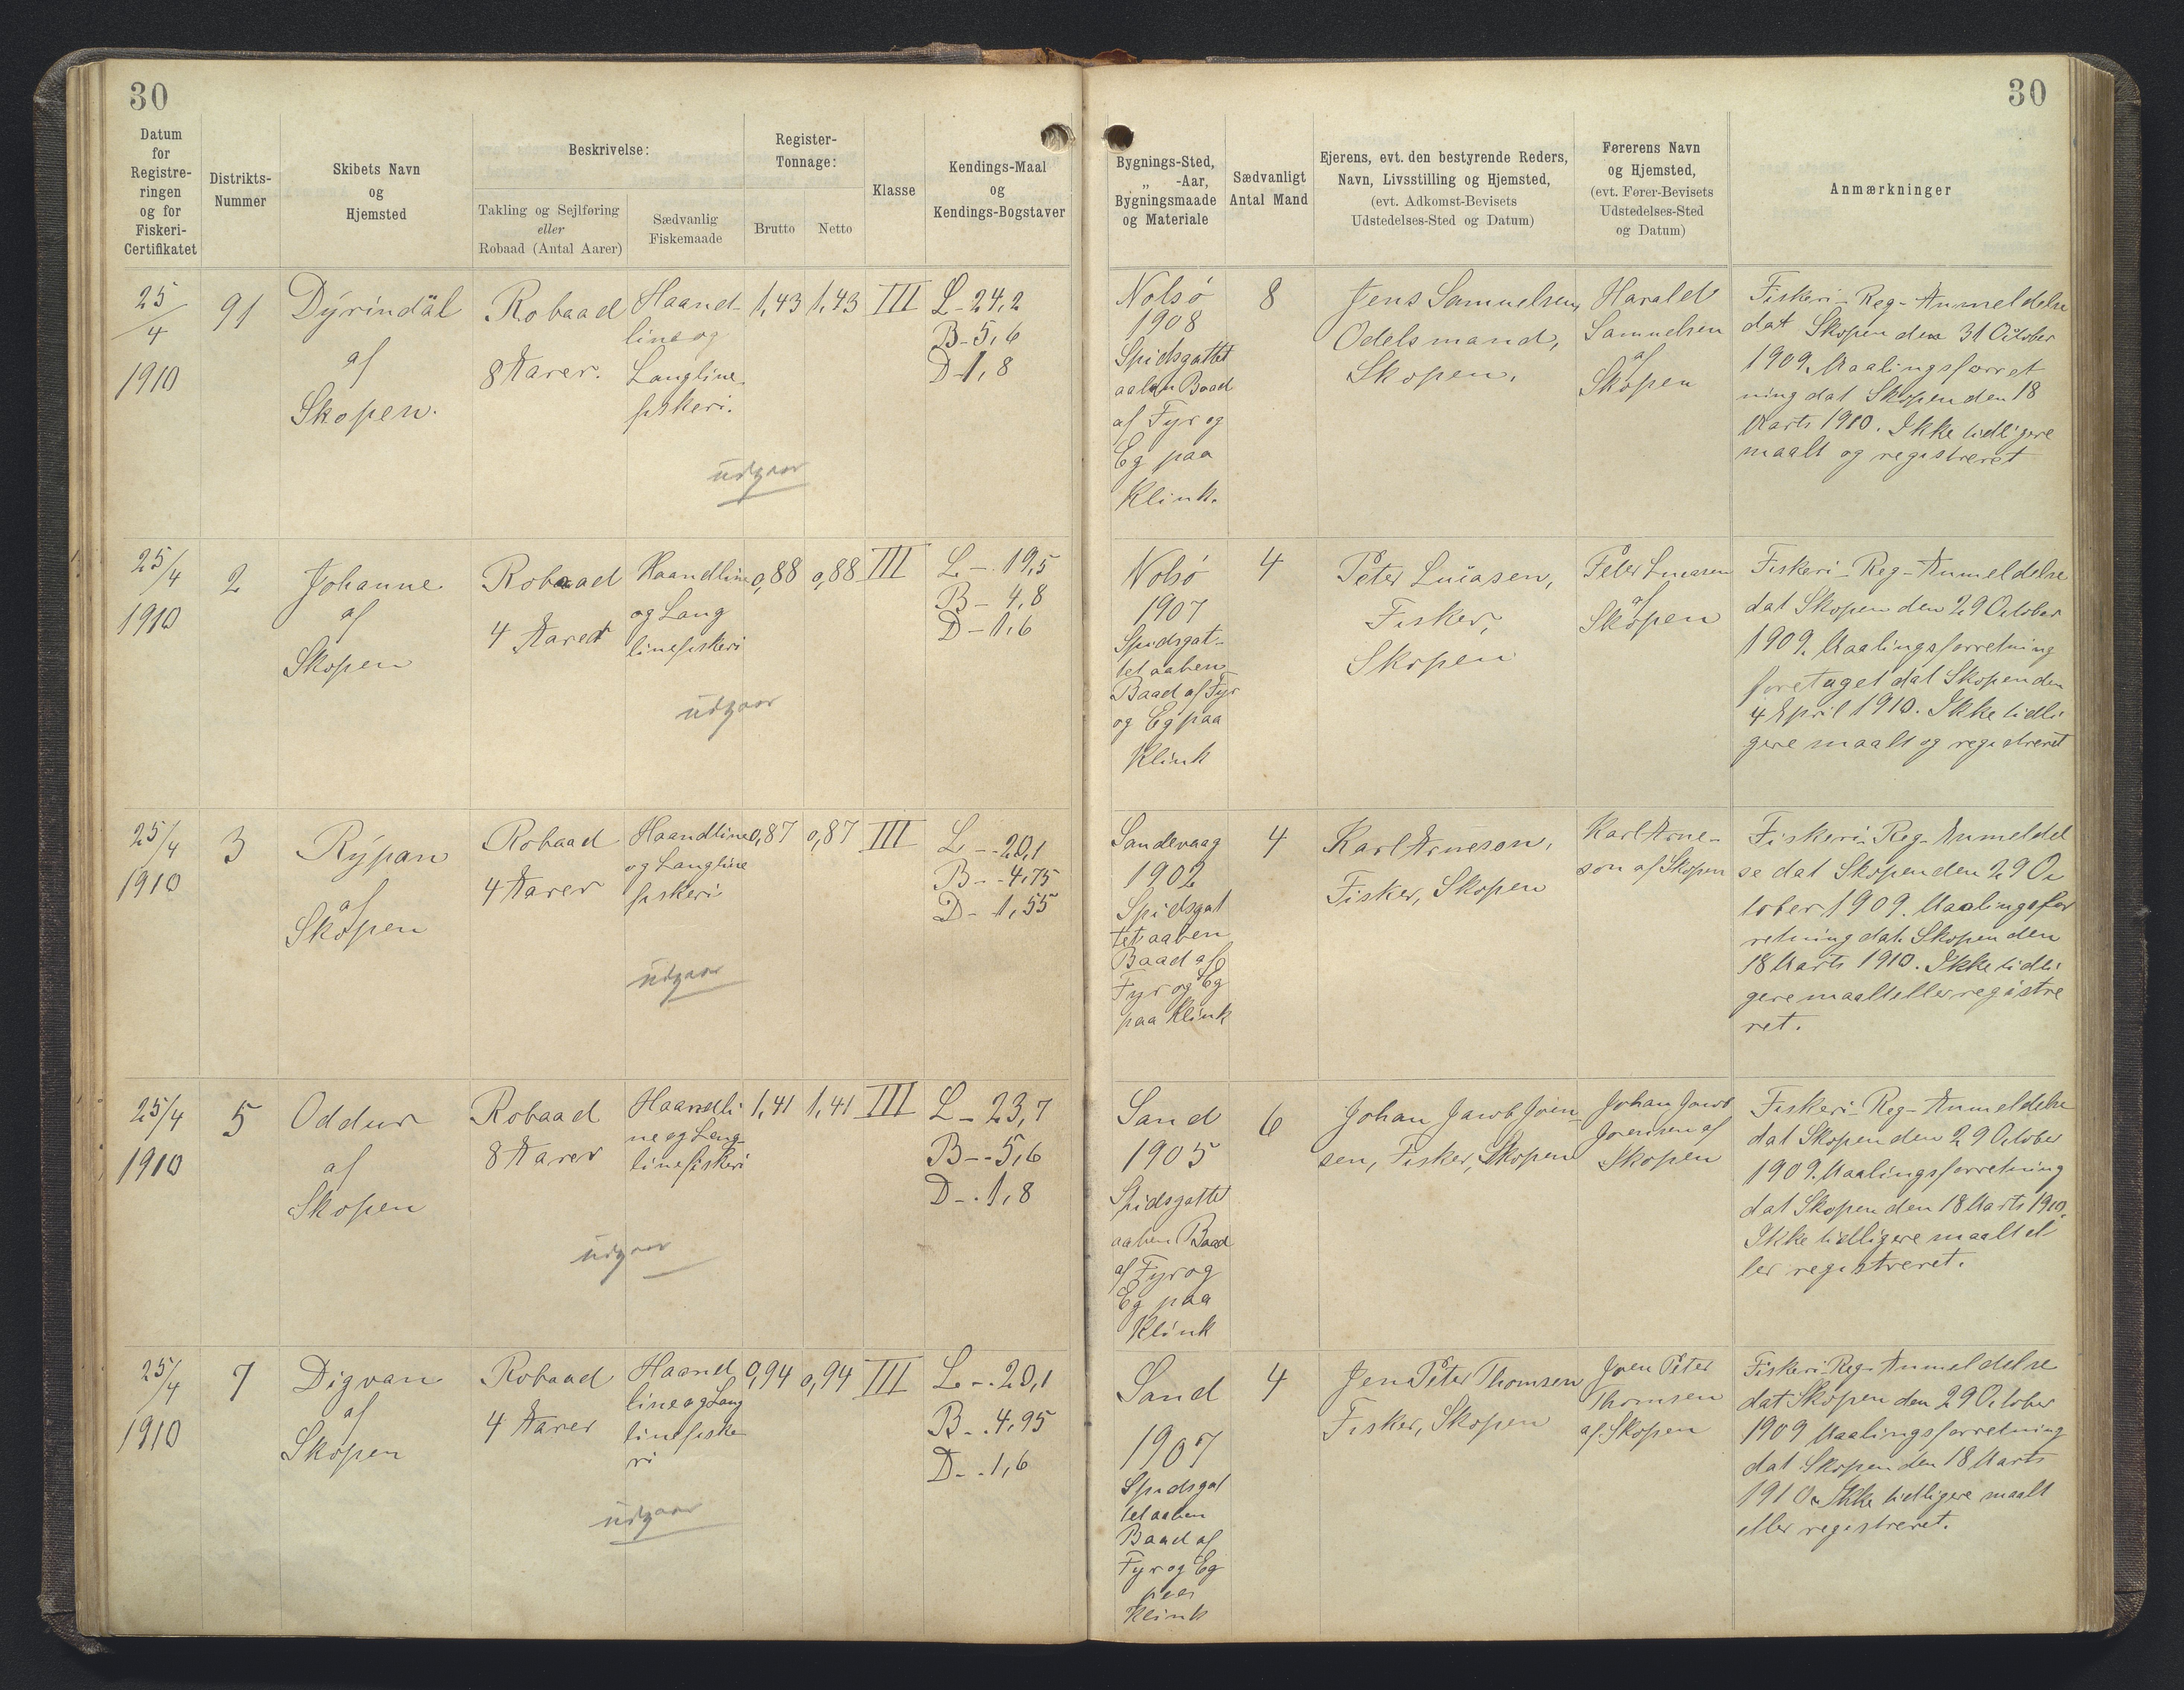 30
30
Datum
for
Registre-
ringen
og for
Fiskeri-
Certifikatet
Distrikts-
Nummer
Skibets Navn
og
Hjemsted
Beskrivelse:
Takling og Sejlføring
eller
Robaad (Antal Aarer)
Sædvanlig
Fiskemaade
Register-
Tonnage:
Brutto
Netto
Klasse
Kendings-Maal
og
Kendings-Bogstaver
Bygnings-Sted,
„ -Aar,
Bygningsmaade
og Materiale
Sædvanligt
Antal Mand
Ejerens, evt. den bestyrende Reders,
Navn, Livsstilling og Hjemsted,
(evt. Adkomst-Bevisets
Udstedelses-Sted og Datum)
Førerens Navn
og Hjemsted,
(evt. Fører-Bevisets
Udstedelses-Sted
og Datum)
Anmærkninger
25/4
1910
91
Dyrindal
af
Skopen.
Robaad
8 Aarer.
Haand-
line og
Langline-
fiskeri.
1,43
1,43
III
L - 24,2
B - 5,6
D 1,8
udgaar
Nolsö
1908
Spidsgattet
aaben Baad
af Fyr og
Eg paa
Klink.
8
Jens Samuelsen,
Odelsmand,
Skopen.
Harald
Samuelsen
af
Skopen
Fiskeri-Reg-Anmeldelse
dat Skopen den 31 October
1909. Maalingsforret
ning dat Skopen den 18
Marts 1910. Ikke tidligere
maalt og registreret
25/4
1910
2
Johanne
af
Skopen
Robaad
4 Aarer
Haandline
og Lang
linefiskeri
0,88
0,88
III
L - 19,5
B - 4,8
D - 1,6
udgaar
Nolsö
1907
Spidsgat-
tet aaben
Baad af Fyr
og Eg paa
Klink
4
Peter Lucasen,
Fisker,
Skopen
Peter Lucasen
af
Skopen
Fiskeri-Reg-Anmeldelse
dat Skopen den 29 October
1909. Maalingsforretning
foretaget dat Skopen den
4 April 1910. Ikke tidli
gere maalt og registreret
25/4
1910
3
Rýpan
af
Skopen
Robaad
4 Aarer
Haandline
og Langline
fiskeri
0,87
0,87
III
L - - 20,1
B - - 4,75
D - 1,55
udgaar
Sandevaag
1902
Spidsgat
tet aaben
Baad af
Fyr og Eg
paa Klink
4
Karl Arneson,
Fisker, Skopen
Karl Arne-
son af Skopen
Fiskeri-Reg-Anmeldel
se dat Skopen den 29 Oc
tober 1909. Maalingsfor
retning dat. Skopen den
18 Marts 1910. Ikke tidli
gere maalt eller registre
ret.
25/4
1910
5
Oddur
af
Skopen
Robaad
8 Aarer
Haandli
ne og Lang-
linefiskeri
1,41
1,41
III
L - 23,7
B - - 5,6
D - . 1,8
udgaar
Sand
1905
Spidsgattet
aaben Baad
af Fyr og
Eg paa
Klink
6
Johan Jacob Joen-
sen, Fisker, Skopen
Johan Jacob
Joensen af
Skopen
Fiskeri-Reg-Anmeldelse
dat Skopen den 29 October
1909. Maalingsforretning
dat Skopen den 18 Marts 1910.
Ikke tidligere maalt el
ler registreret.
25/4
1910
7
Digvan
af
Skopen
Robaad
4 Aarer
Haand
line og Lang
linefiske
ri
0,94
0,94
III
L - . 20,1
B - . 4,95
D - . 1,6
udgaar
Sand
1907
Spidsgat
tet aaben
Baad af
Fyr og Eg
paa
Klink
4
Jen Peter Thomsen
Fisker, Skopen
Joen Peter
Thomsen
af Skopen
Fiskeri-Reg-Anmeldelse
dat Skopen den 29 October
1909 Maalingsforretning
dat Skopen den 18 Marts
1910. Ikke tidligere maalt
eller registreret.